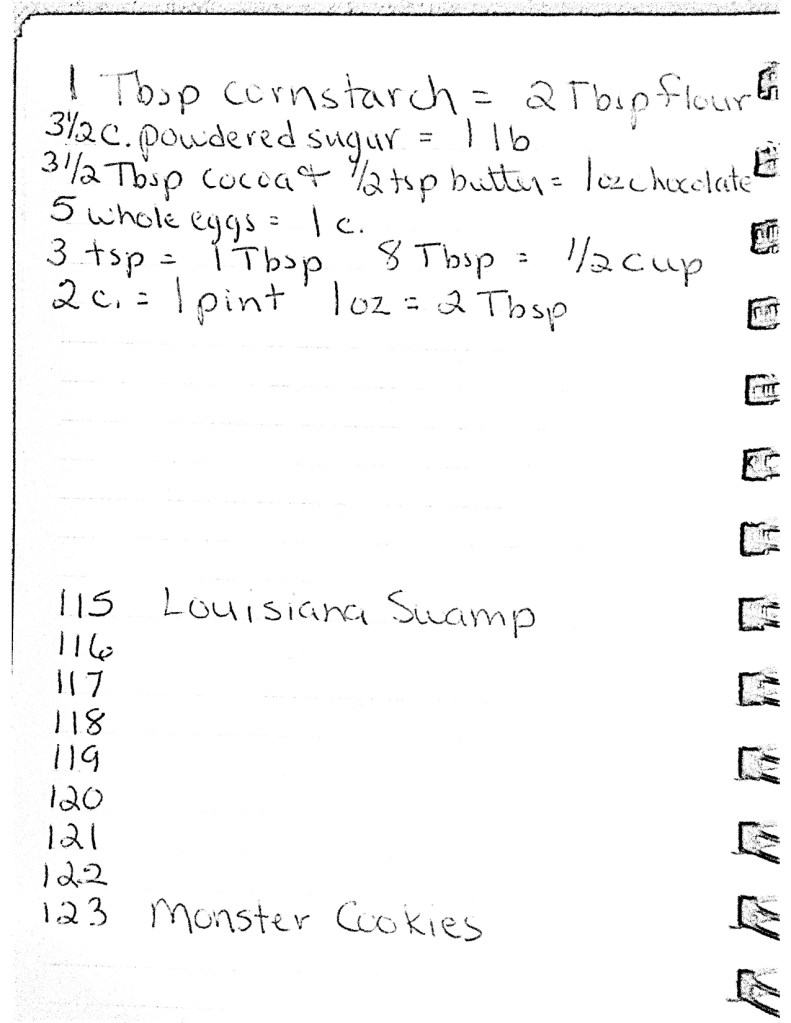 1 Tbsp cornstarch = 2 Tbsp flour
3 1/2 c. powdered sugar = 1 lb
3 1/2 Tbsp cocoa + 1/2 tsp butter = 1 oz chocolate
5 whole eggs = 1 c.
3 tsp = 1 Tbsp 8 Tbsp = 1/2 cup
2 c. = 1 pint 1 oz = 2 Tbsp
115 Louisiana Swamp
116
117
118
119
120
121
122
123 Monster Cookies